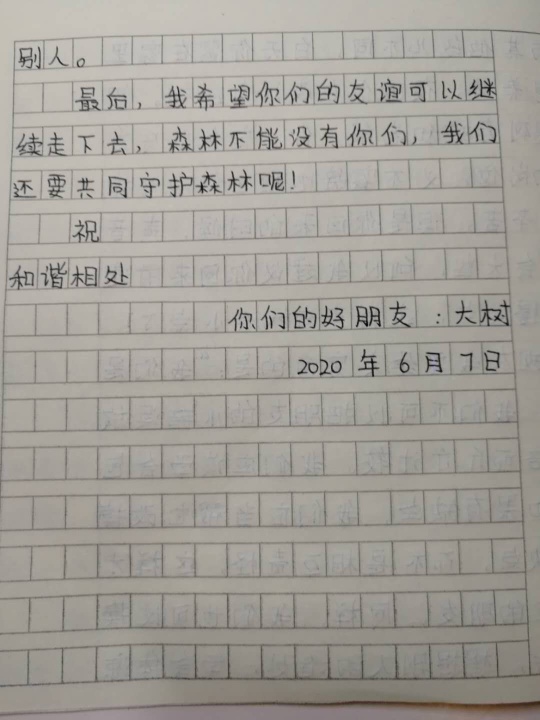 别人。
最后，我希望你们的友谊可以继
续走下去，森林不能没有你们，我们
还要共同守护森林呢！
祝
和谐相处
你们的好朋友：大树
2020年6月7日